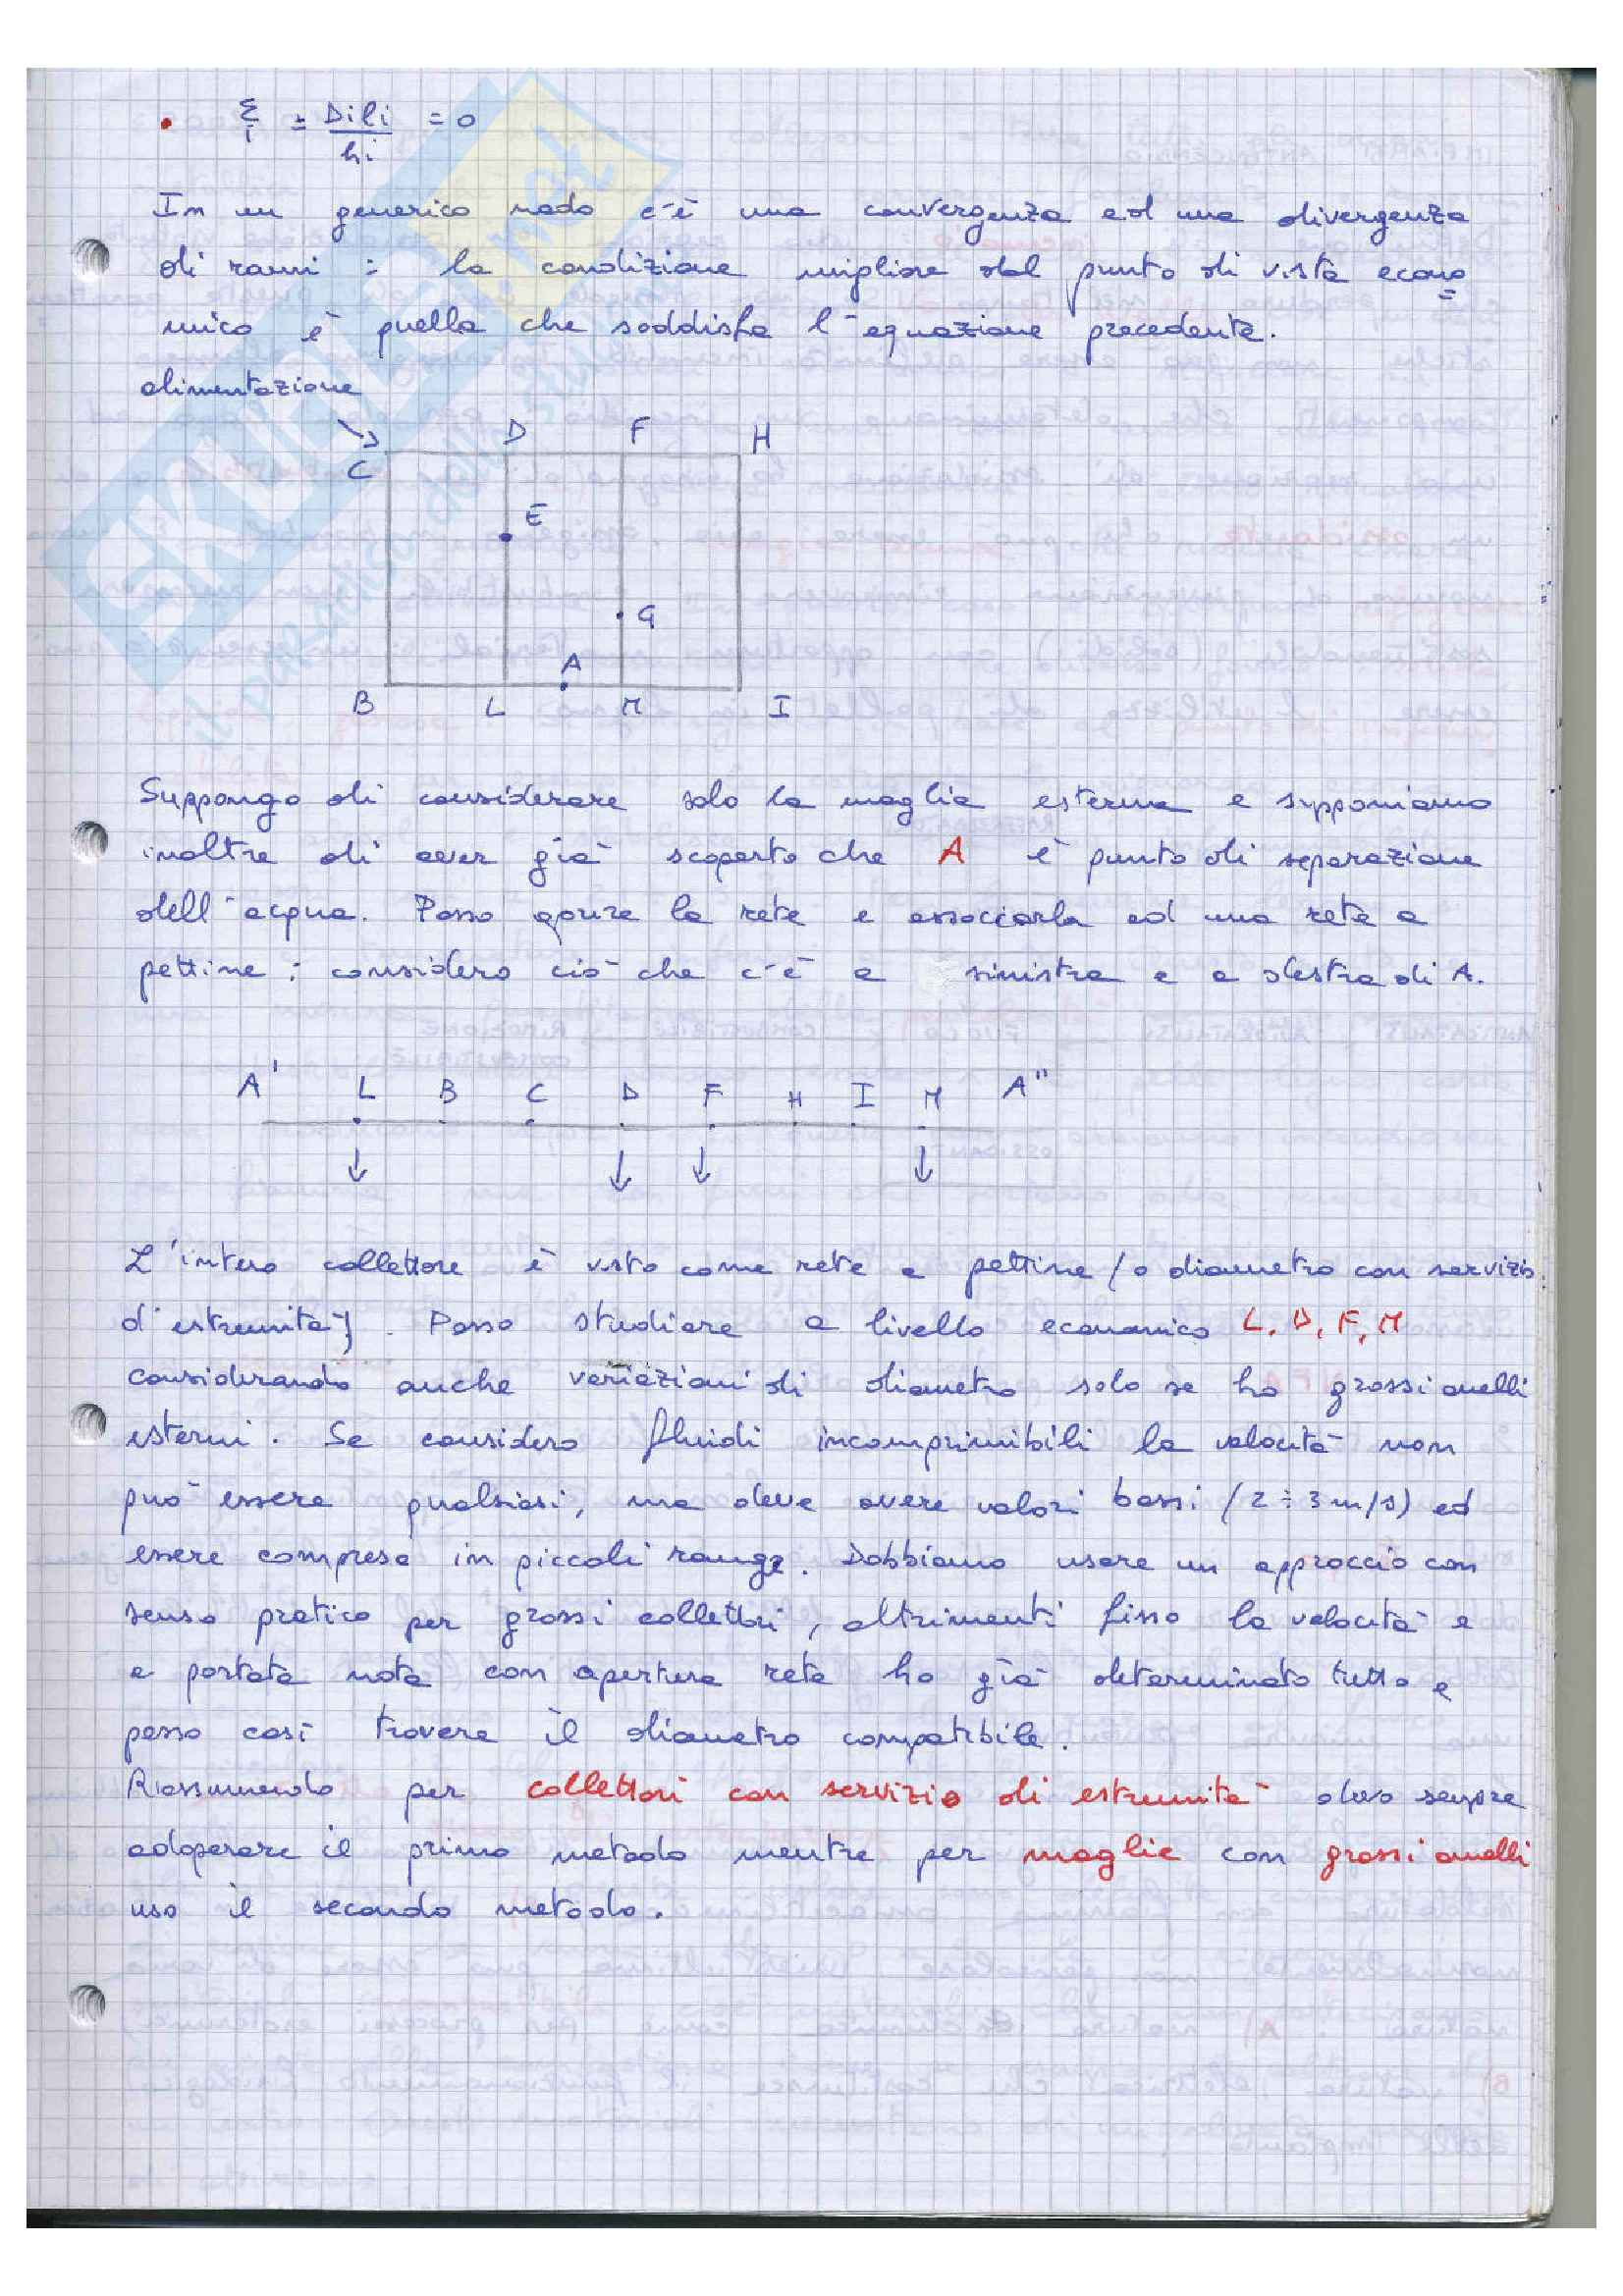 • Σi = Dili = 0
hi
In un generico nodo c'è una convergenza ed una divergenza
di rami : la condizione migliore dal punto di vista econo
mico è quella che soddisfa l'equazione precedente.
alimentazione
D F H
C
E
G
A
B L M I
Suppongo di considerare solo la maglia esterna e supponiamo
inoltre di aver già scoperto che A è punto di separazione
dell'acqua. Posso aprire la rete e associarla ad una rete a
pettine : considero ciò che c'è a sinistra e a destra di A.
A' L B C D F H I M A"
L'intero collettore è visto come rete a pettine (o diametro con servizio
d'estremità). Posso studiare a livello economico L, D, F, M
considerando anche variazioni di diametro solo se ho grossi anelli
esterni. Se considero fluidi incomprimibili la velocità non
può essere qualsiasi, ma deve avere valori bassi (2÷3 m/s) ed
essere compresa in piccoli range. Dobbiamo usare un approccio con
senso pratico per grossi collettori, altrimenti fisso la velocità e
a portata nota con apertura rete ho già determinato tutto e
posso così trovare il diametro compatibile.
Riassumendo per collettori con servizio di estremità devo sempre
adoperare il primo metodo mentre per maglie con grossi anelli
uso il secondo metodo.
SKUOLA.net
il paradiso dello studente